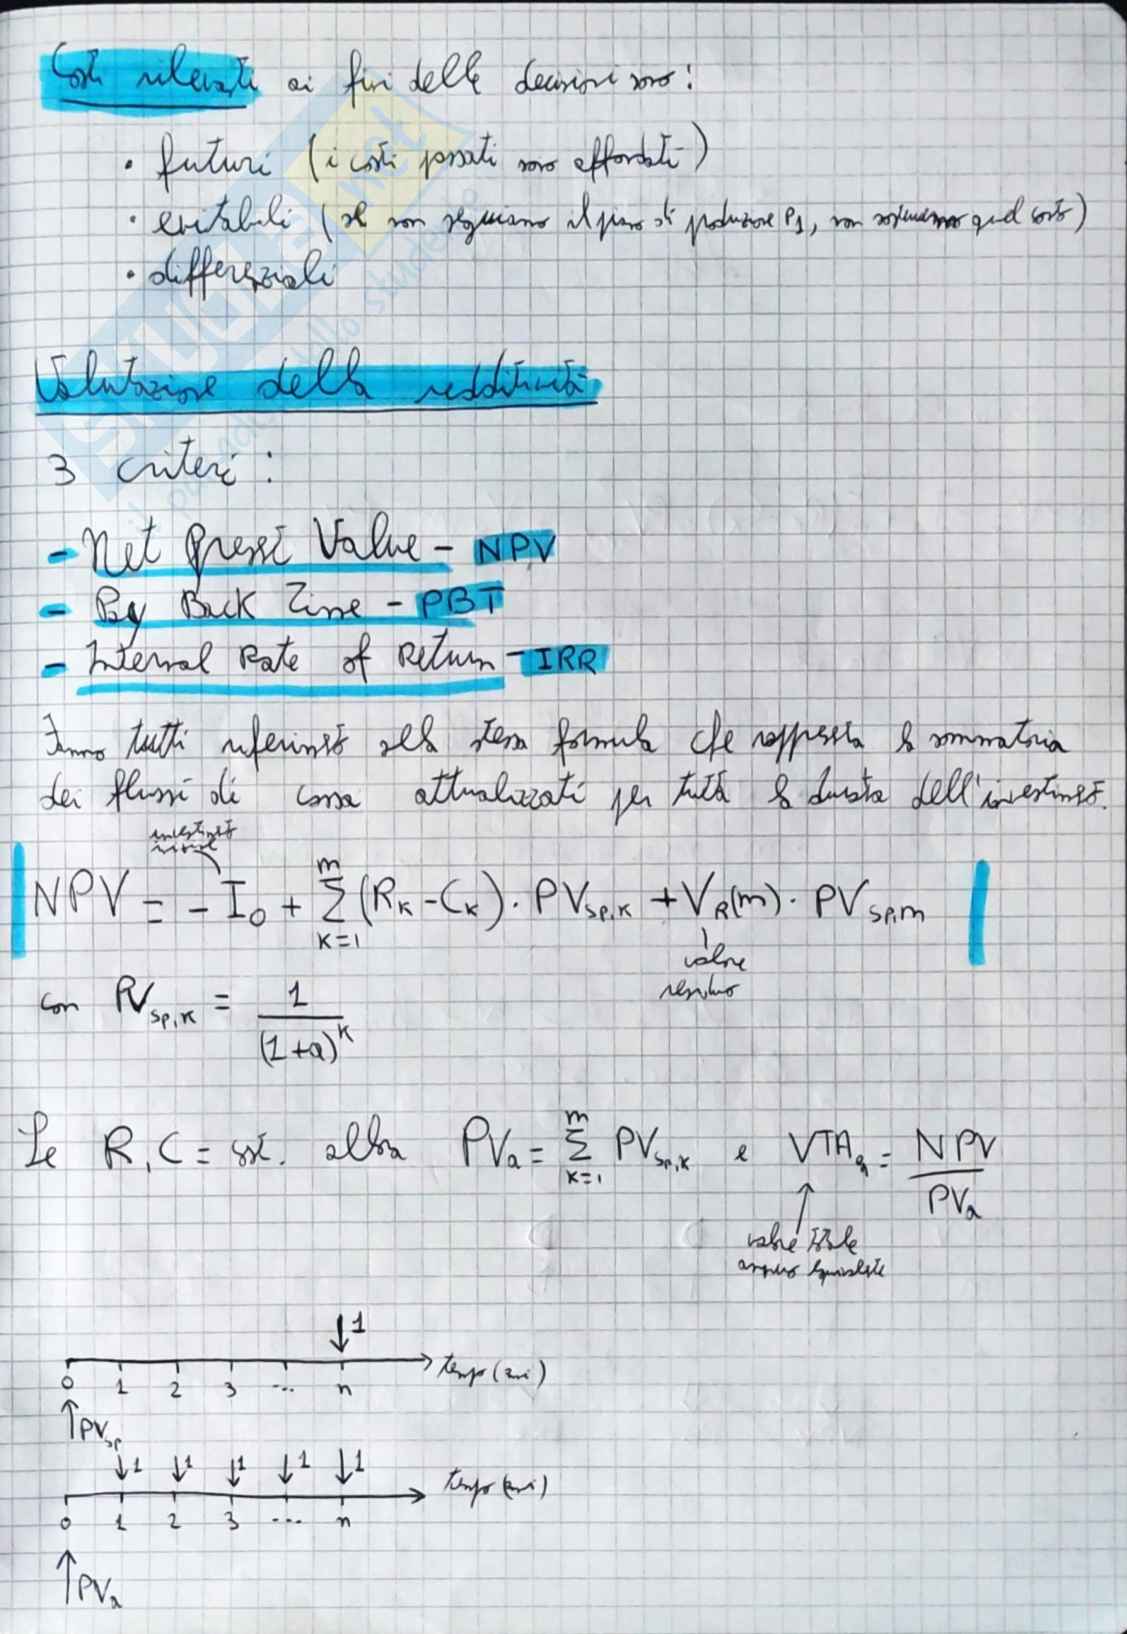 Costi rilevanti ai fini delle decisioni sono:
• futuri (i costi passati sono affondati)
• evitabili (se non seguiamo il piano di produzione P1, non sosteniamo quel costo)
• differenziali
Valutazione della redditività
3 criteri:
- Net Present Value - NPV
- Pay Back Time - PBT
- Internal Rate of Return - IRR
Fanno tutti riferimento alla stessa formula che rappresenta la sommatoria
dei flussi di cassa attualizzati per tutta la durata dell'investimento.
investimento
iniziale
NPV = - I₀ + Σ_{K=1}^{m} (R_K - C_K) · PV_{SP,K} + V_R(m) · PV_{SP,m}
valore
residuo
con PV_{SP,K} = 1 / (1+a)^K
Se R, C = cost. allora PV_a = Σ_{K=1}^{m} PV_{SP,K} e VTA_q = NPV / PV_a
valore totale
annuo equivalente
↓1
0 1 2 3 ... n tempo (anni)
↑PV_{SP}
↓1 ↓1 ↓1 ↓1 ↓1
0 1 2 3 ... n tempo (anni)
↑PV_a